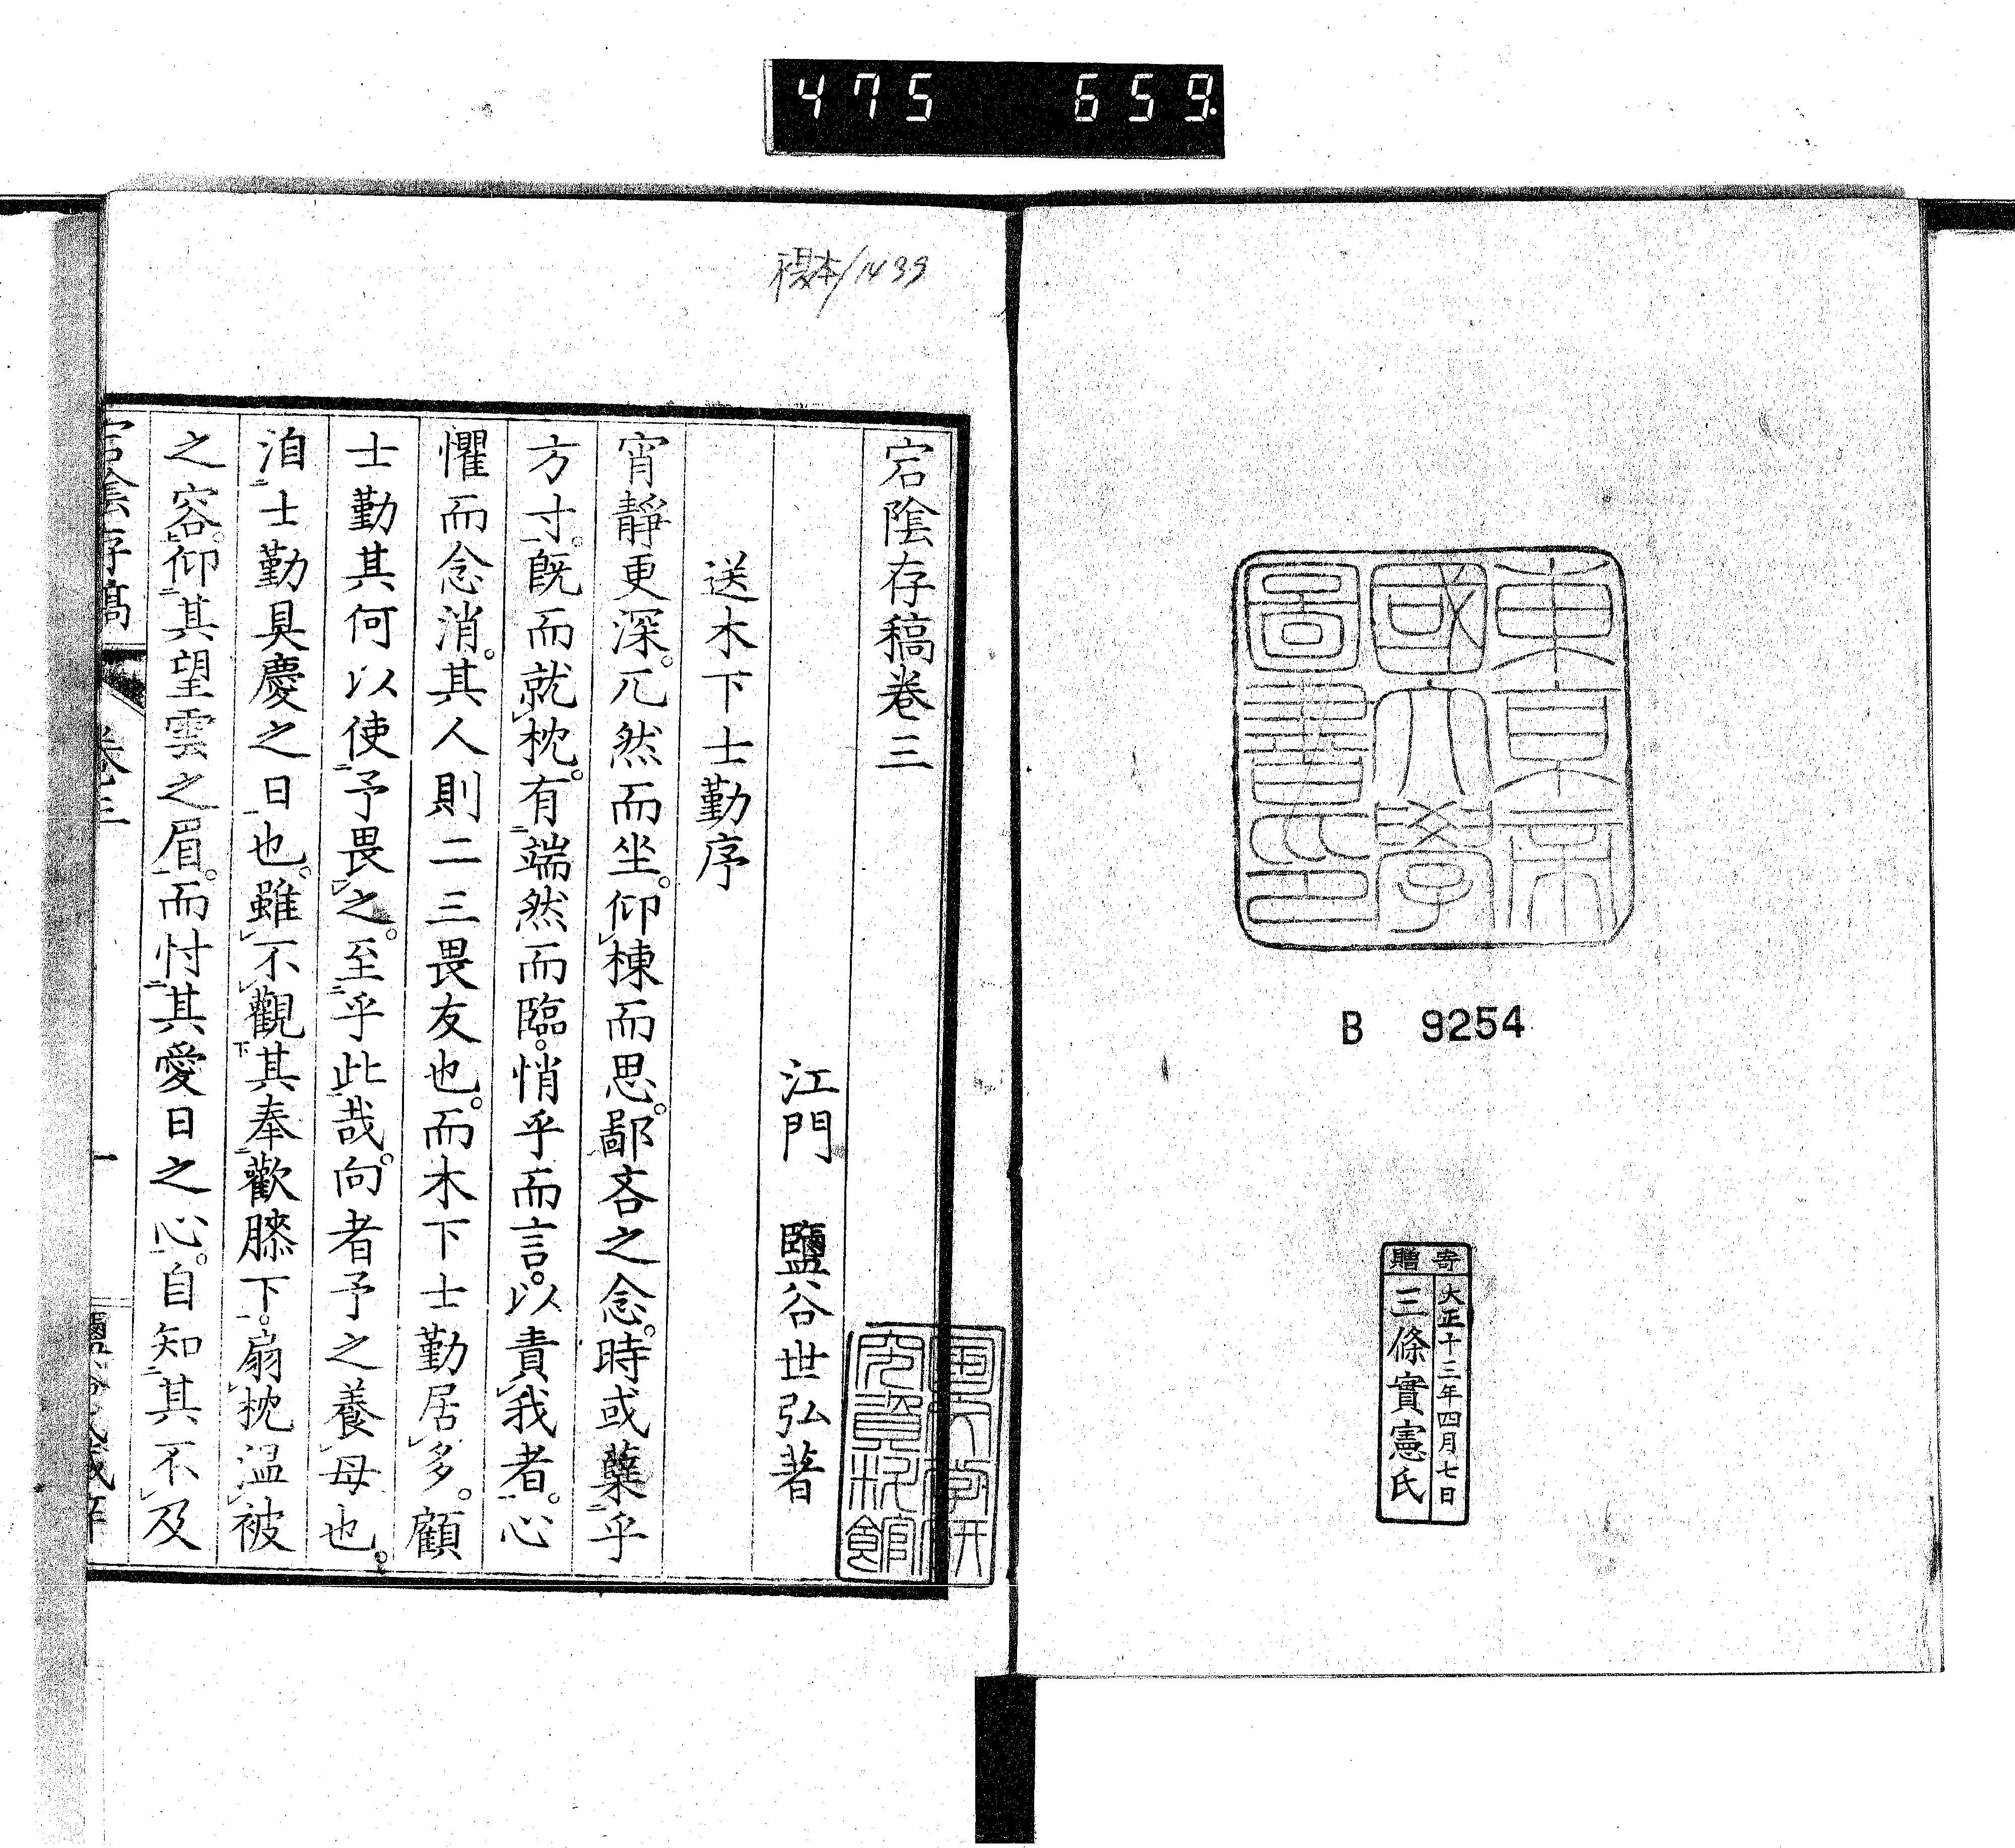 475 659.
複本/1439
東京帝
國大學
圖書印
B 9254
寄贈
大正十三年四月七日
三條實憲氏
宕陰存稿卷三
江門 鹽谷世弘著
送木下士勤序
宵靜更深。兀然而坐。仰棟而思。鄙吝之念。時或蘖乎
方寸。既而就枕。有端然而臨。悄乎而言。以責我者。心
懼而念消。其人則二三畏友也。而木下士勤居多。顧
士勤其何以使予畏之。至乎此哉。向者予之養母也。
洎士勤具慶之日也。雖不觀其奉歡膝下。扇枕溫被
之容。仰其望雲之眉。而忖其愛日之心。自知其不及
宕陰存稿 卷三 一